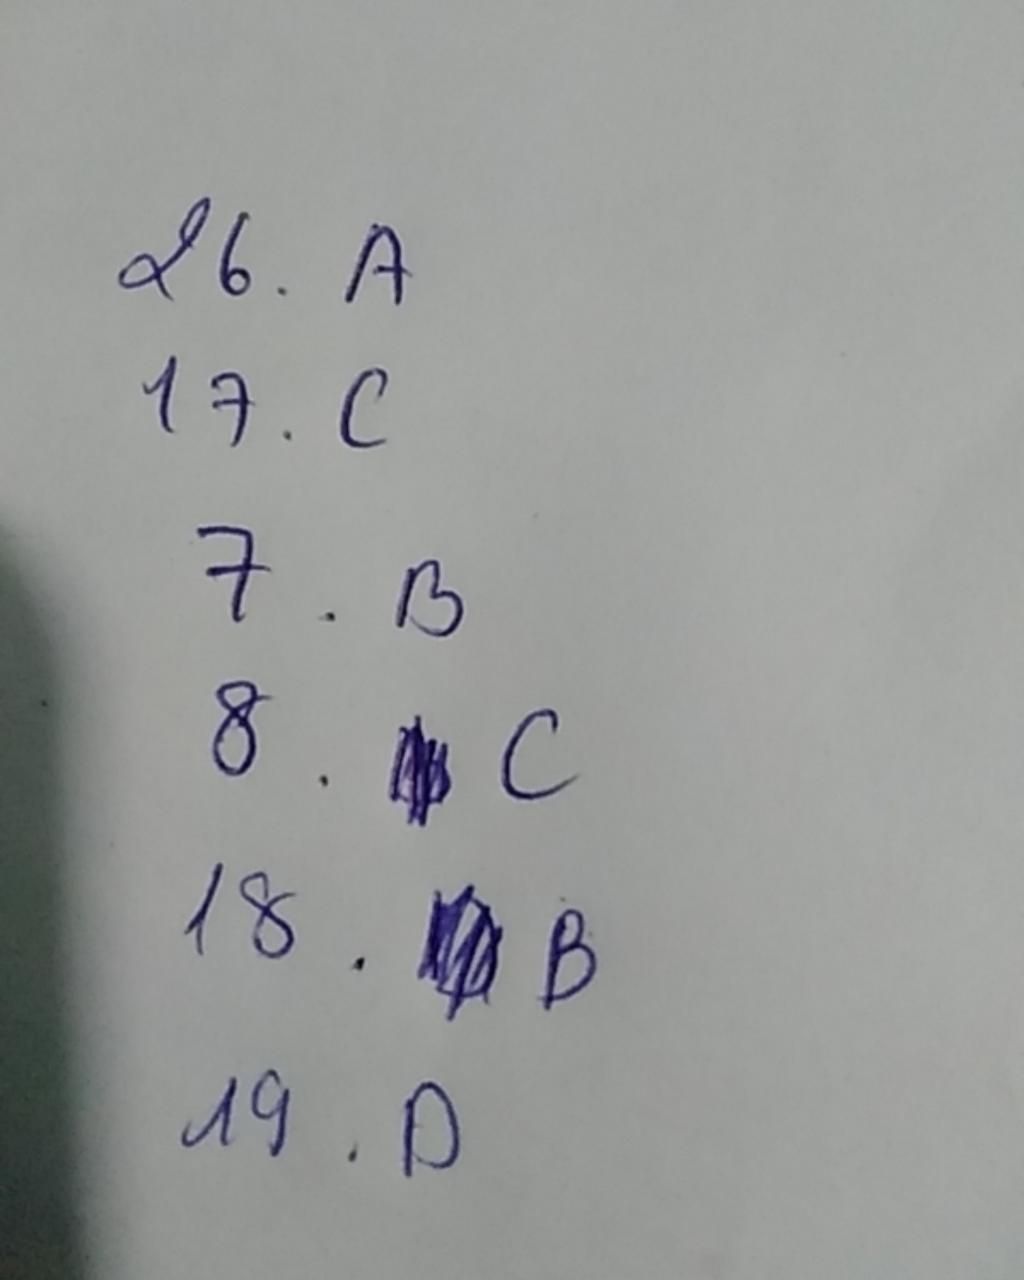 26. A
17. C
7. B
8. C
18. B
19. D